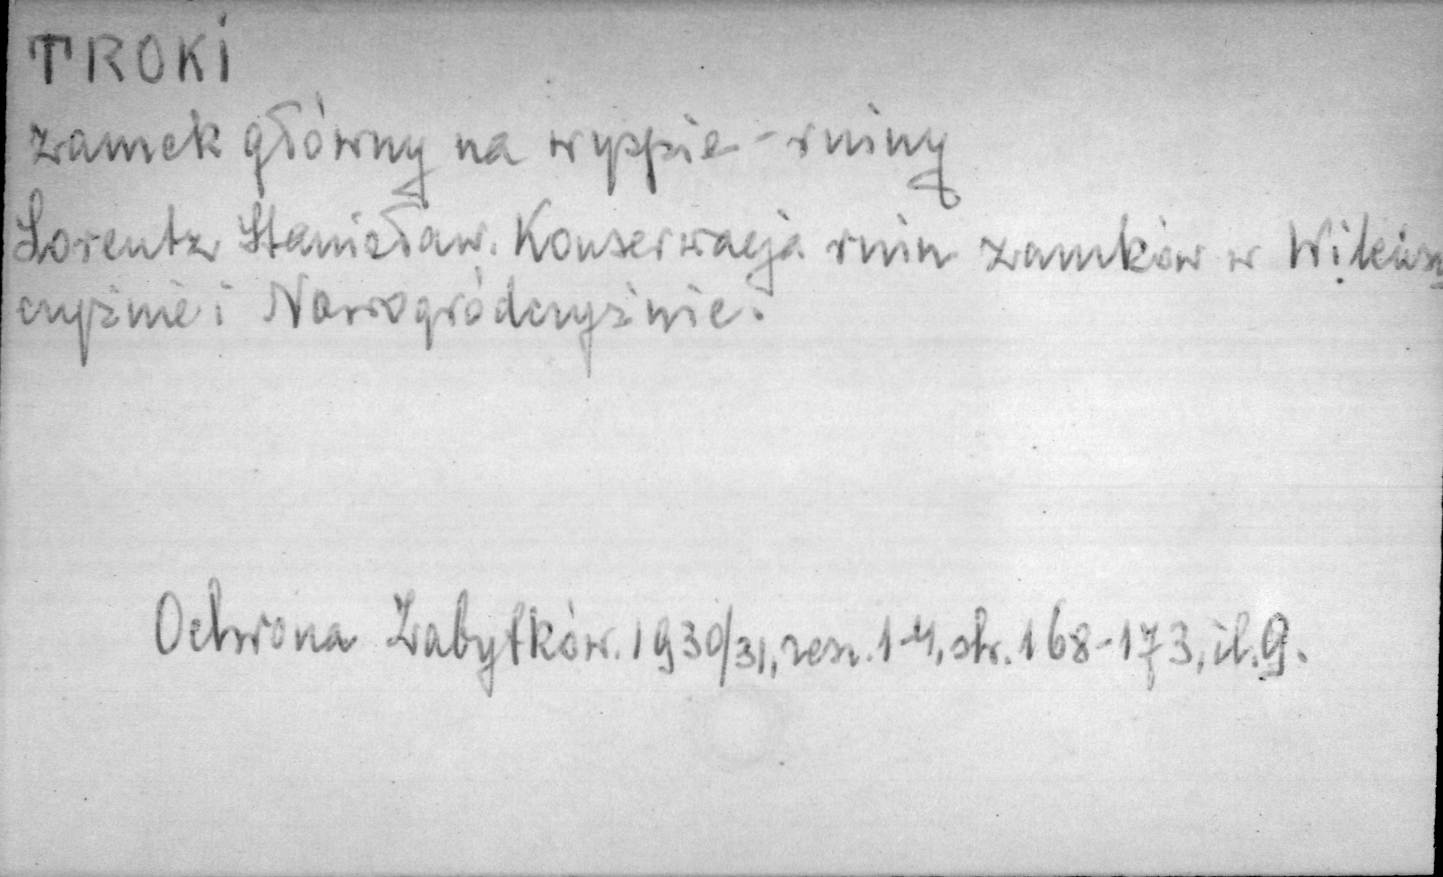 TROKI
zamek główny na wyspie - ruiny
Lorentz Stanisław. Konserwacja ruin zamków w Wileńsz
czyźnie i Nowogródczyźnie.
Ochrona Zabytków. 1930/31, zesz. 1-4, str. 168-173, il. 9.